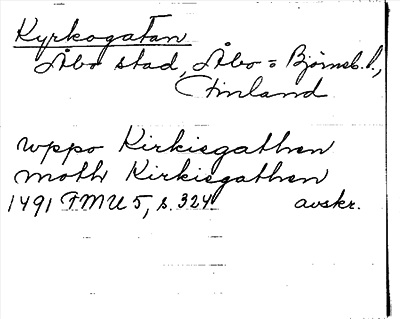 Kyrkogatan
Åbo stad, Åbo = Björneb. l.,
Finland
wppo Kirkisgathen
moth Kirkisgathen
1491 FMU 5, s. 324 avskr.